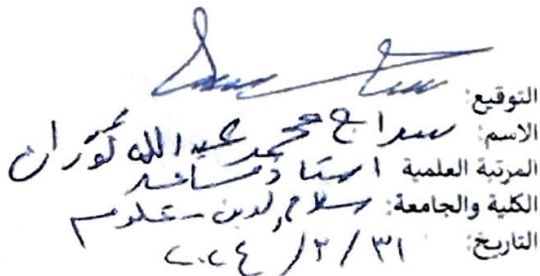 التوقيع:
الاسم: سراج محمد عبدالله گوران
المرتبة العلمية استاذ مساعد
الكلية والجامعة: صلاح الدين - علوم
التاريخ: ٣١ / ٣ / ٢٠٢٤